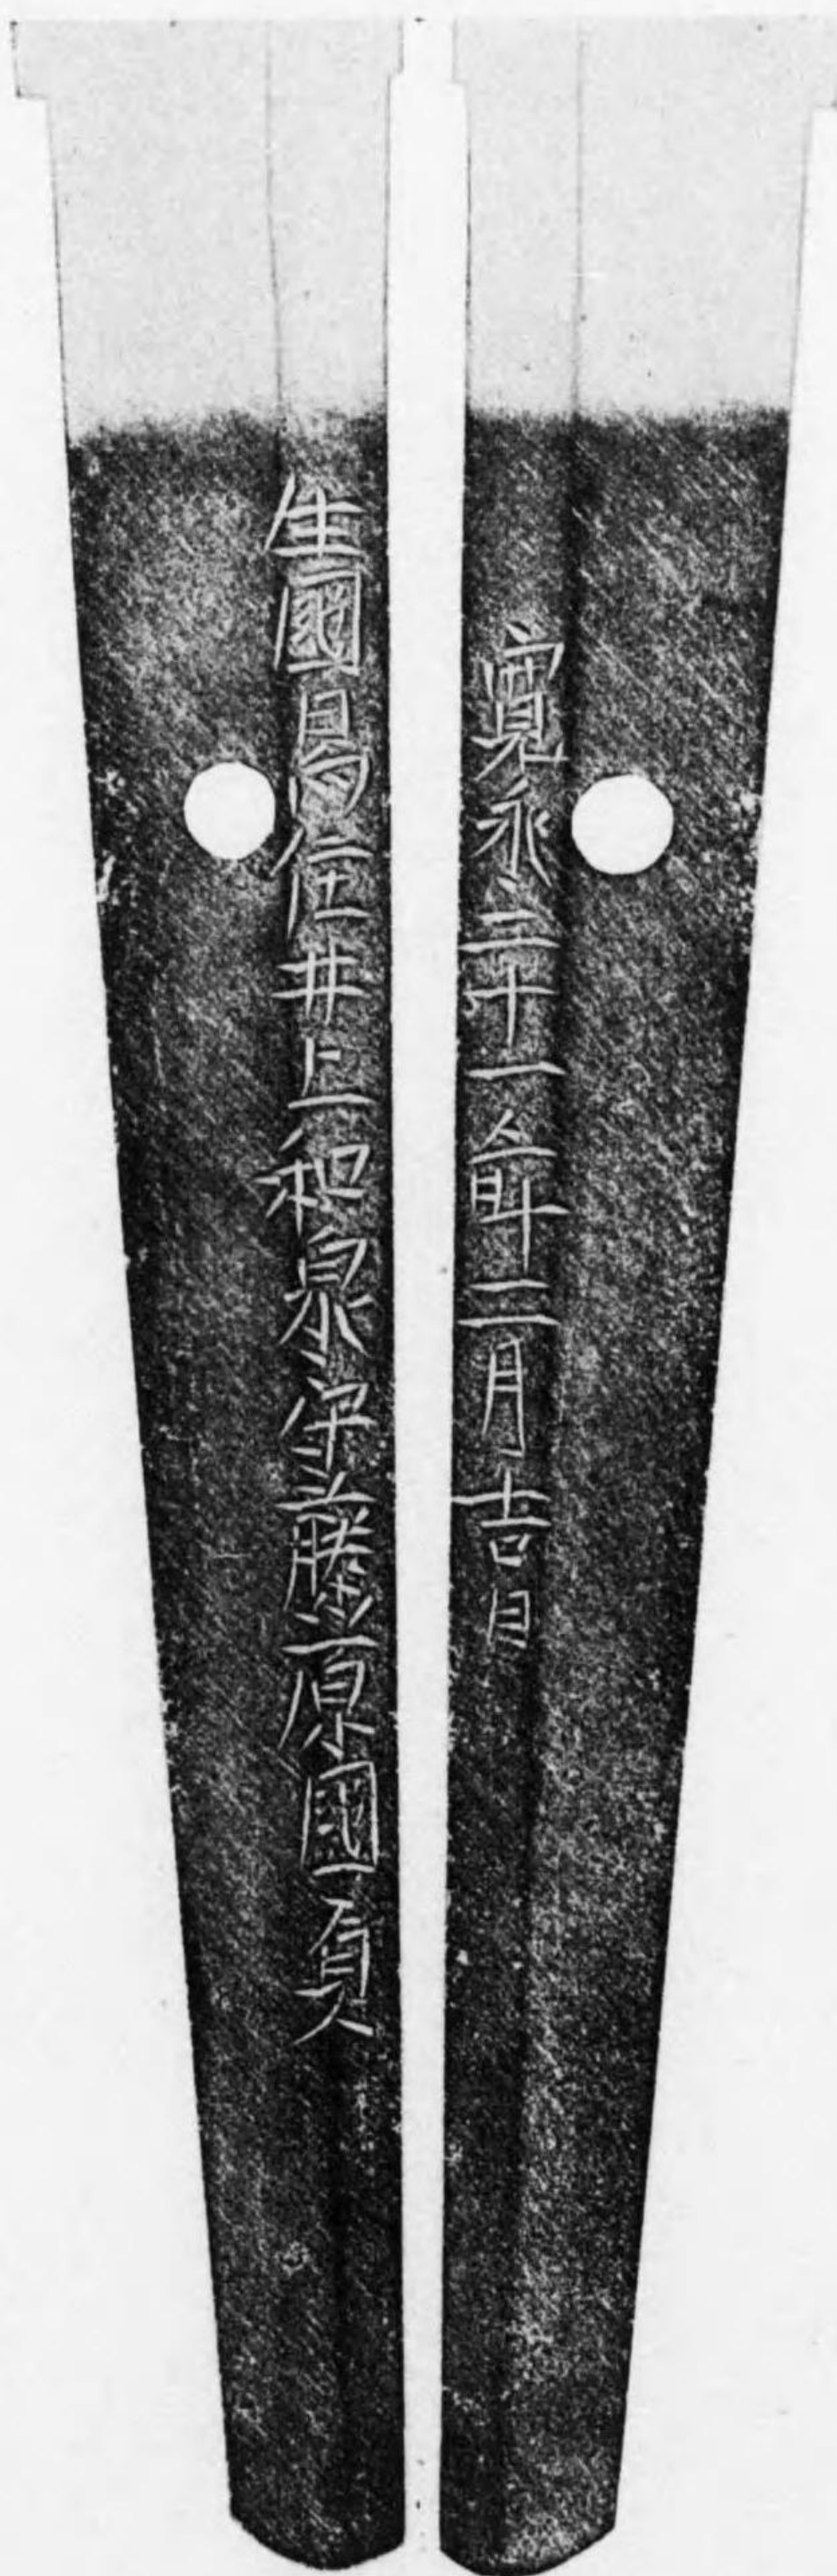 寛永二十一歳二月吉日
生國日向住井上和泉守藤原國貞